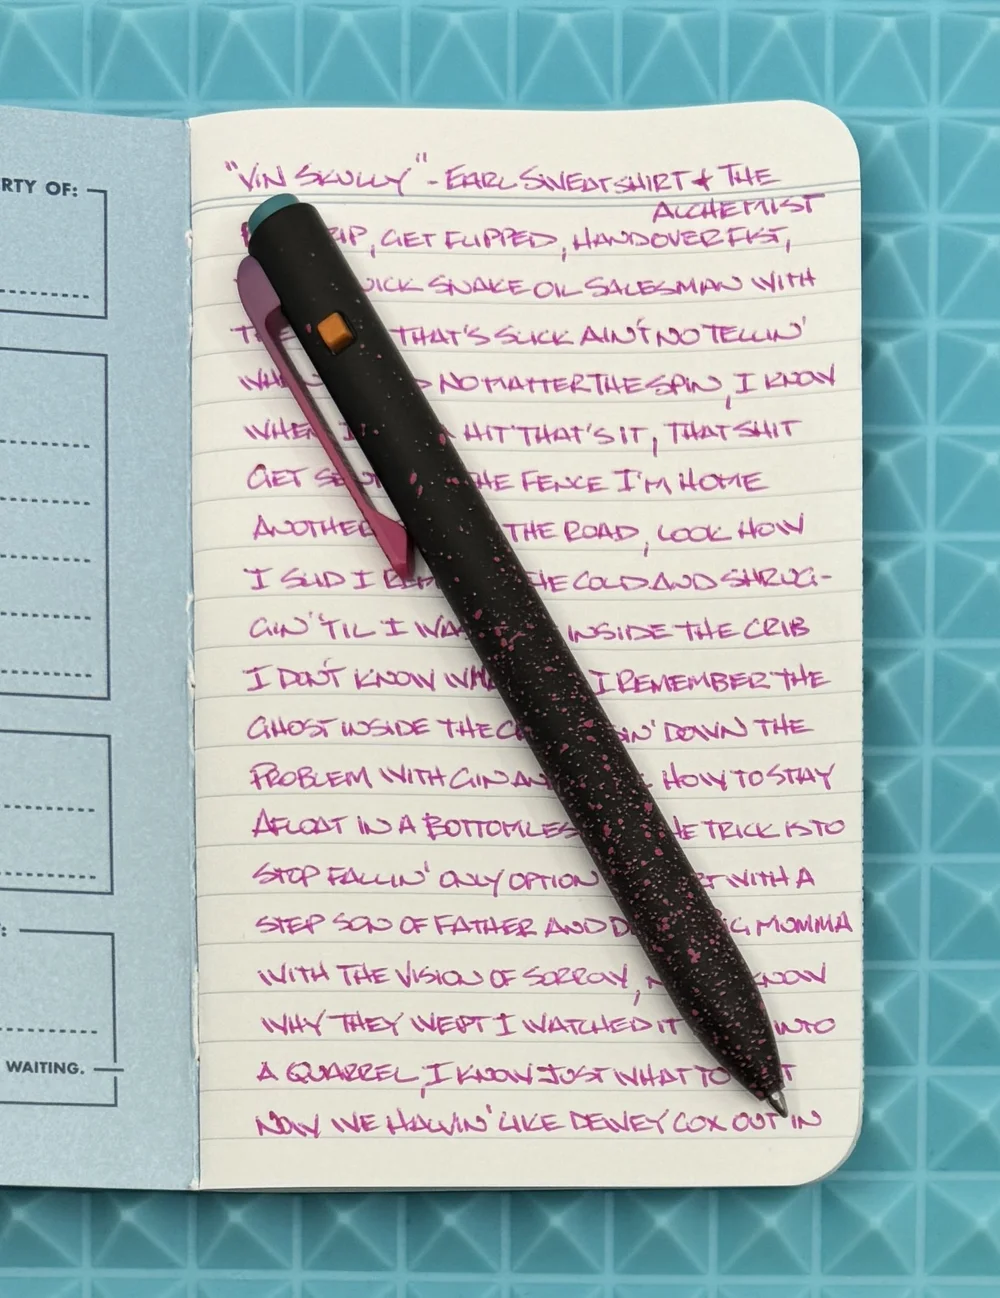 RTY OF:
WAITING.
"VIN SKULLY" - EARL SWEATSHIRT & THE
ALCHEMIST
GET FLIPPED, HAND OVER FIST,
SNAKE OIL SALESMAN WITH
THAT'S SLICK AIN'T NO TELLIN'
NO MATTER THE SPIN, I KNOW
WHEN HIT THAT'S IT, THAT SHIT
GET THE FENCE I'M HOME
ANOTHER THE ROAD, LOOK HOW
I SLID I THE COLD AND SHRUG-
GIN' 'TIL I INSIDE THE CRIB
I DON'T KNOW I REMEMBER THE
GHOST INSIDE THE DOWN THE
PROBLEM WITH GIN HOW TO STAY
AFLOAT IN A BOTTOMLESS TRICK IS TO
STOP FALLIN' ONLY OPTION WITH A
STEP SON OF FATHER AND MOMMA
WITH THE VISION OF SORROW, KNOW
WHY THEY WEPT I WATCHED IT INTO
A QUARREL, I KNOW JUST WHAT TO
NOW WE HALVIN' LIKE DEWEY COX OUT IN